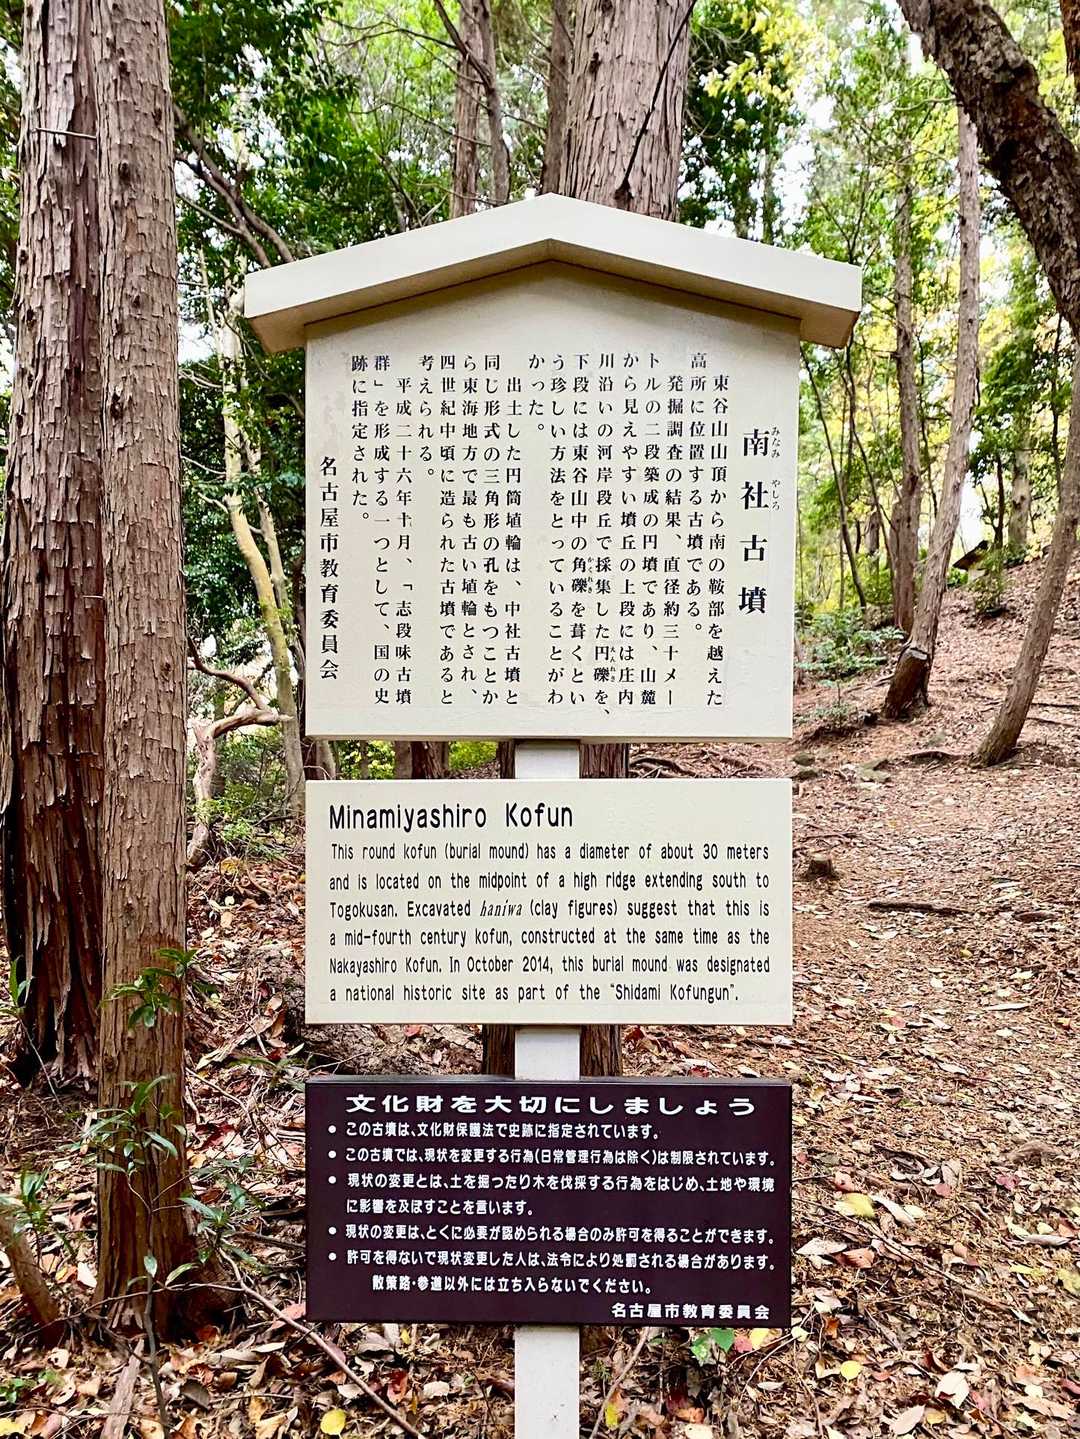 南社古墳
みなみ やしろ
東谷山山頂から南の鞍部を越えた
高所に位置する古墳である。
発掘調査の結果、直径約三十メー
トルの二段築成の円墳であり、山麓
から見えやすい墳丘の上段には庄内
川沿いの河岸段丘で採集した円礫を、
えんれき
下段には東谷山中の角礫を葺くとい
かくれき
う珍しい方法をとっていることがわ
かった。
出土した円筒埴輪は、中社古墳と
同じ形式の三角形の孔をもつことか
ら東海地方で最も古い埴輪とされ、
四世紀中頃に造られた古墳であると
考えられる。
平成二十六年十月、「志段味古墳
群」を形成する一つとして、国の史
跡に指定された。
名古屋市教育委員会
Minamiyashiro Kofun
This round kofun (burial mound) has a diameter of about 30 meters
and is located on the midpoint of a high ridge extending south to
Togokusan. Excavated haniwa (clay figures) suggest that this is
a mid-fourth century kofun, constructed at the same time as the
Nakayashiro Kofun. In October 2014, this burial mound was designated
a national historic site as part of the "Shidami Kofungun".
文化財を大切にしましょう
● この古墳は、文化財保護法で史跡に指定されています。
● この古墳では、現状を変更する行為(日常管理行為は除く)は制限されています。
● 現状の変更とは、土を掘ったり木を伐採する行為をはじめ、土地や環境
に影響を及ぼすことを言います。
● 現状の変更は、とくに必要が認められる場合のみ許可を得ることができます。
● 許可を得ないで現状変更した人は、法令により処罰される場合があります。
散策路・参道以外には立ち入らないでください。
名古屋市教育委員会